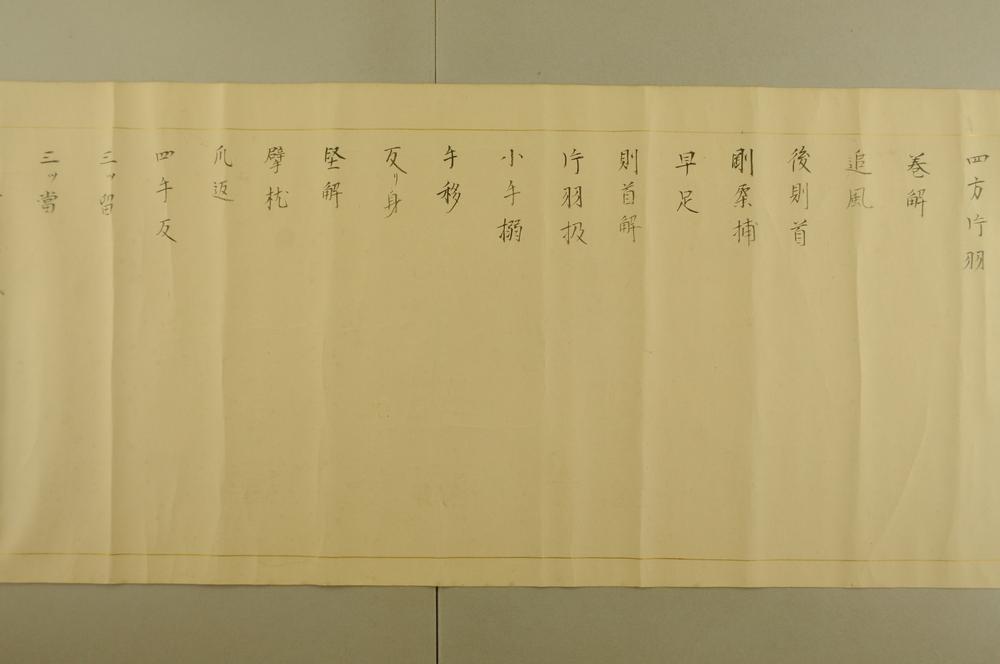 四方片羽
巻解
追風
後則首
剛桑捕
早足
則首解
片羽扱
小手搦
手移
反リ身
堅解
臂枕
爪返
四手反
三ッ留
三ッ當